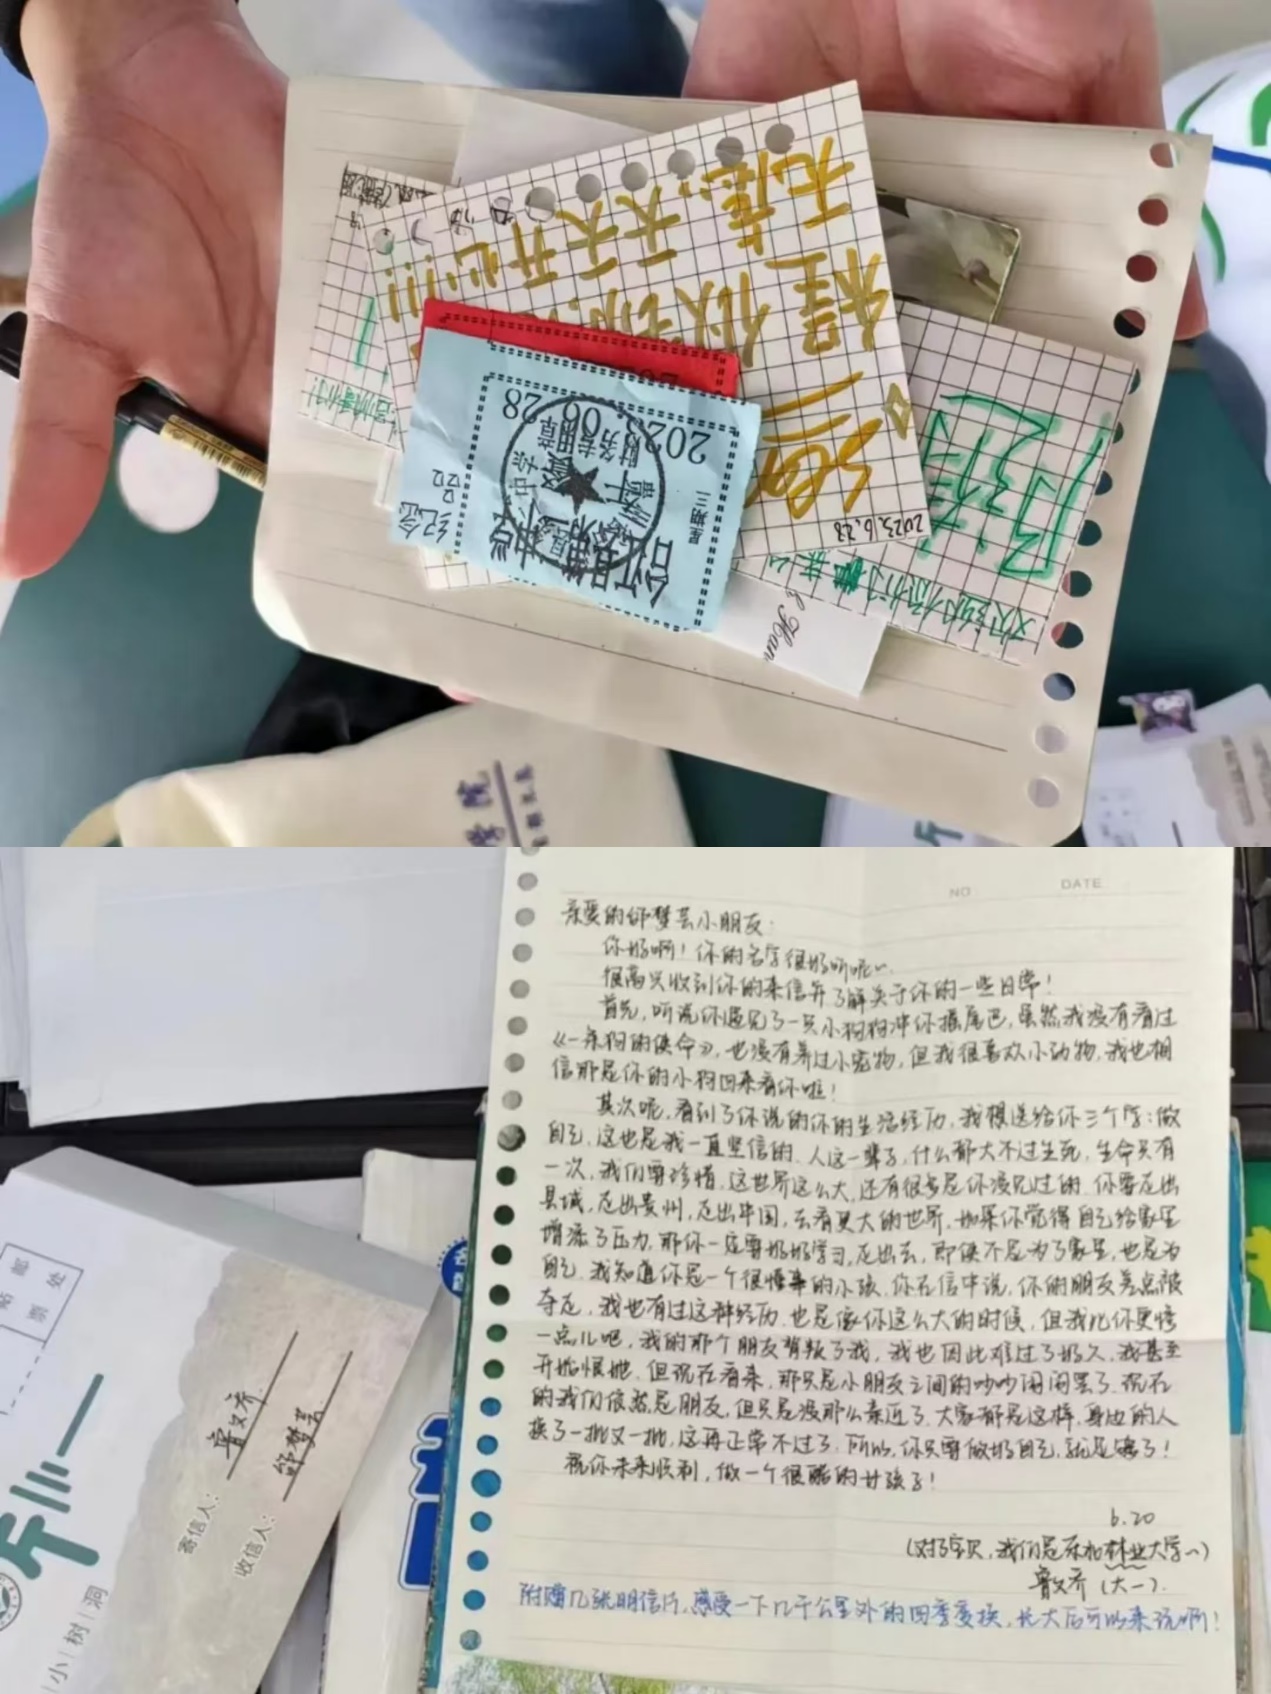 一切
做到，天天开心!!!
无虑，天天
2023.6.28
2023 06 28
星期三
财务专用章
纪念
学院
NO DATE
亲爱的邰梦芸小朋友：
你好啊！你的名字很好听呢~.
很高兴收到你的来信并了解关于你的一些日常！
首先，听说你遇见了一只小狗狗冲你摇尾巴，虽然我没有看过
《一条狗的使命》，也没有养过小宠物，但我很喜欢小动物，我也相
信那是你的小狗回来看你啦！
其次呢，看到了你说的你的生活经历，我想送给你三个字：做
自己，这也是我一直坚信的，人这一辈子，什么都大不过生死，生命只有
一次，我们要珍惜，这世界这么大，还有很多是你没见过的，你要走出
县城，走出贵州，走出中国，去看更大的世界，如果你觉得自己给家里
增添了压力，那你一定要好好学习，走出去，即使不是为了家里，也是为
自己，我知道你是一个很懂事的小孩，你在信中说，你的朋友差点被
夺走，我也有过这种经历，也是像你这么大的时候，但我比你更惨
一点儿吧，我的那个朋友背叛了我，我也因此难过了好久，我甚至
开始恨她，但现在看来，那只是小朋友之间的吵吵闹闹罢了，现在
的我们依然是朋友，但只是没那么亲近了，大家都是这样，身边的人
换了一批又一批，这再正常不过了，所以，你只要做好自己，就足够了！
祝你未来顺利，做一个很酷的女孩子！
6.20
（对了宝贝，我们是东北林业大学~）
鲁文乔（大一）.
附赠几张明信片，感受一下几千公里外的四季变换，长大后可以来玩啊！
邮票
贴处
寄信人：鲁文乔
收信人：邰梦芸
小|树|洞